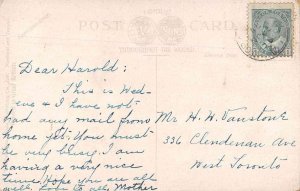 POST CARD
THROUGHOUT THE WORLD
Dear Harold:
This is Wed-
es & I have not
had any mail from
home yet. You must
be very busy. I am
having a very nice
time. Hope you are all
well, love to all, Mother
Mr. H. W. Vanstone
336 Clendenan Ave
West Toronto